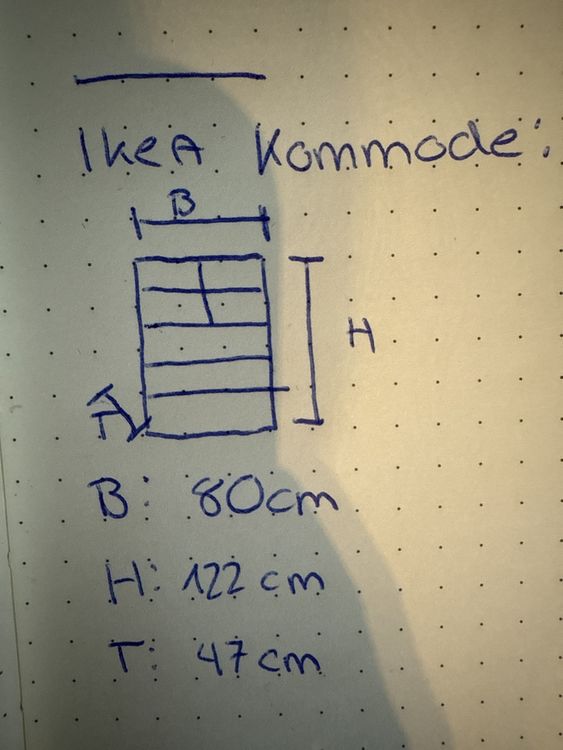 IkeA Kommode:
B
H
T
B: 80cm
H: 122 cm
T: 47 cm